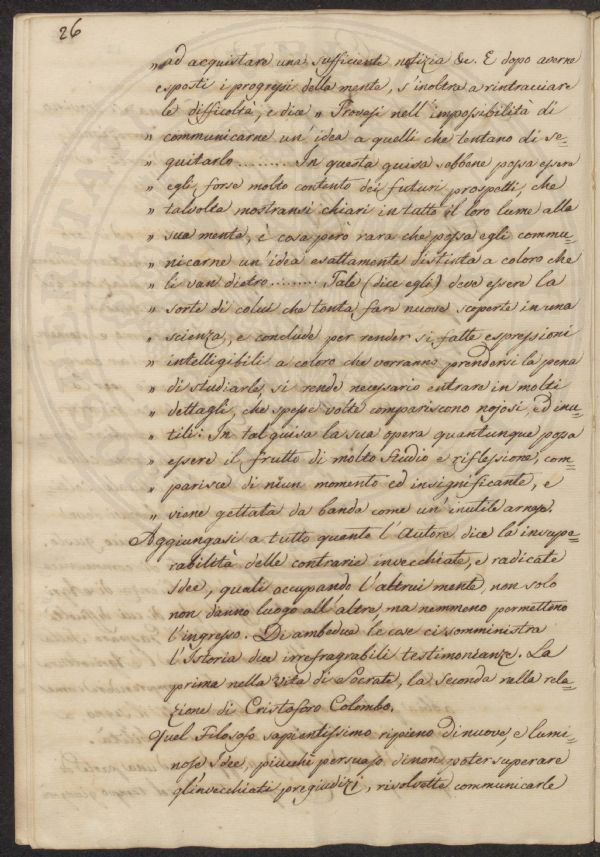 26
„ ad acquistare una sufficiente notizia &c. E dopo averne
esposti i progressi della mente, s'inoltra a rintracciare
le difficoltà, e dice „ Trovasi nell'impossibilità di
„ communicarne un'idea a quelli che tentano di se-
„ guitarlo .......... In questa guisa sebbene possa essere
„ egli forse molto contento dei futuri prospetti, che
„ talvolta mostransi chiari in tutto il loro lume alla
„ sua mente, è cosa però rara che possa egli commu-
„ nicarne un'idea esattamente distista a coloro che
„ li van dietro ......... Tale (dice egli) deve essere la
„ sorte di colui che tenta fare nuove scoperte in una
„ scienza, e conclude per render sì fatte espressioni
„ intelligibili a coloro che vorranno prendersi la pena
„ di studiarle, si rende necessario entrare in molti
„ dettagli, che spesse volte compariscono nojosi, ed inu-
„ tili: In tal guisa la sua opera quantunque possa
„ essere il frutto di molto studio e riflessione, com-
„ parisce di niun momento ed insignificante, e
„ viene gettata da banda come un'inutile arnese.
Aggiungasi a tutto quanto l'Autore dice la insupe-
rabilità delle contrarie invecchiate, e radicate
Idee, quali occupando l'altrui mente, non solo
non danno luogo all'altre, ma nemmeno permettono
l'ingresso. Di ambedue le cose ci somministra
l'Istoria due irrefragrabili testimonianze. La
prima nella vita di Socrate, la seconda nella rela-
zione di Cristoforo Colombo.
Quel Filosofo sapientissimo ripieno di nuove, e lumi-
nose Idee, piucchè persuaso di non poter superare
gl'invecchiati pregiudizi, risolvette communicarle